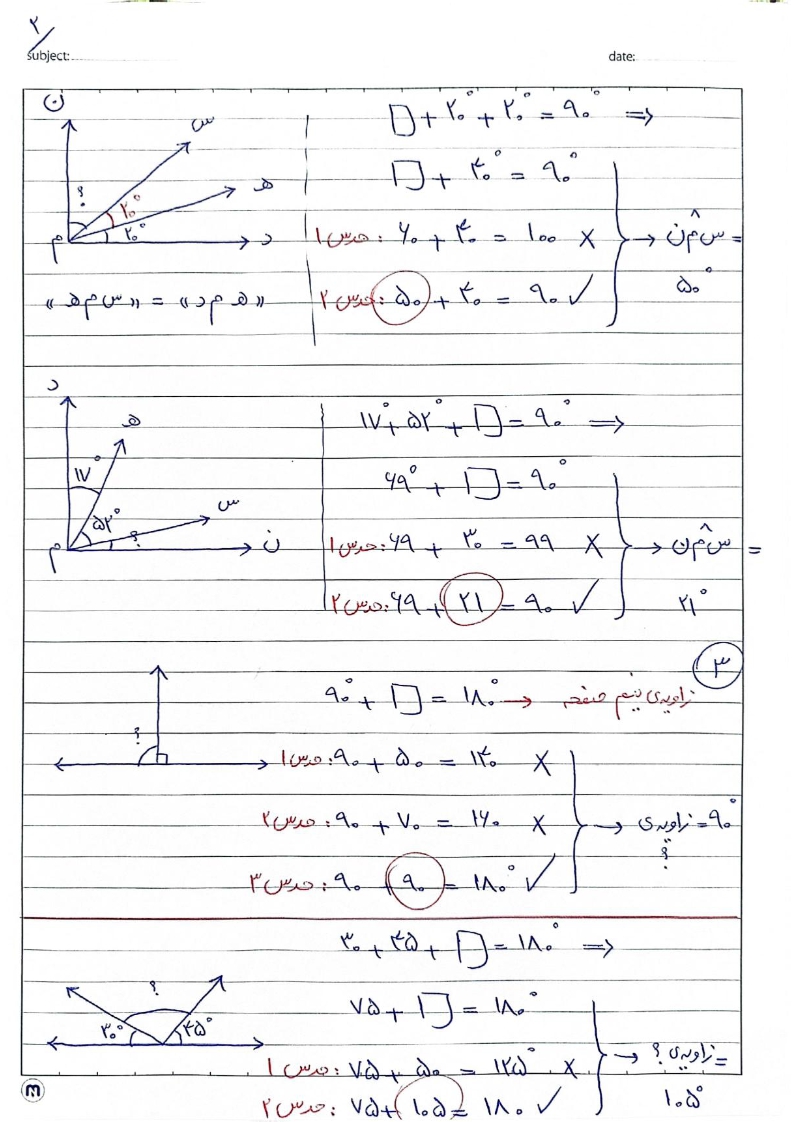 ۲
subject:
date:
ن
س
ه
د
م
؟
۲۰°
۲۰°
«ه م د» = «س م ه»
□ + ۲۰° + ۲۰° = ۹۰° ⇒
□ + ۴۰° = ۹۰°
حدس ۱: ۶۰ + ۴۰ = ۱۰۰ ×
حدس ۲: ۵۰ + ۴۰ = ۹۰ ✓
→ س م̂ ن = ۵۰°
د
ه
س
ن
م
۱۷°
۵۲°
؟
۱۷° + ۵۲° + □ = ۹۰° ⇒
۶۹° + □ = ۹۰°
حدس ۱: ۶۹ + ۳۰ = ۹۹ ×
حدس ۲: ۶۹ + ۲۱ = ۹۰ ✓
→ س م̂ ن = ۲۱°
۳
؟
۹۰° + □ = ۱۸۰° → زاویه‌ی نیم صفحه
حدس ۱: ۹۰ + ۵۰ = ۱۴۰ ×
حدس ۲: ۹۰ + ۷۰ = ۱۶۰ ×
حدس ۳: ۹۰ + ۹۰ = ۱۸۰° ✓
→ زاویه‌ی ؟ = ۹۰°
۳۰ + ۴۵ + □ = ۱۸۰° ⇒
۷۵ + □ = ۱۸۰°
؟
۳۰°
۴۵°
حدس ۱: ۷۵ + ۵۰ = ۱۲۵° ×
حدس ۲: ۷۵ + ۱۰۵ = ۱۸۰ ✓
→ زاویه‌ی ؟ = ۱۰۵°